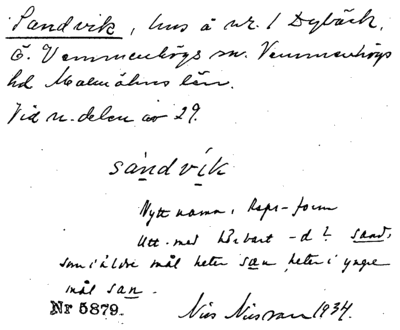 Sandvik, hus å nr. 1 Dybäck,
Ö. Vemmenhögs sn. Vemmenhögs
hd Malmöhus län.
Vid n. delen av 29.
sandvík
Nytt namn, Raps-form
Utt. med hörbart -d? sand,
som i äldre mål heter san, heter i yngre
mål san.
Nr 5879.
Nils Nilsson 1934.